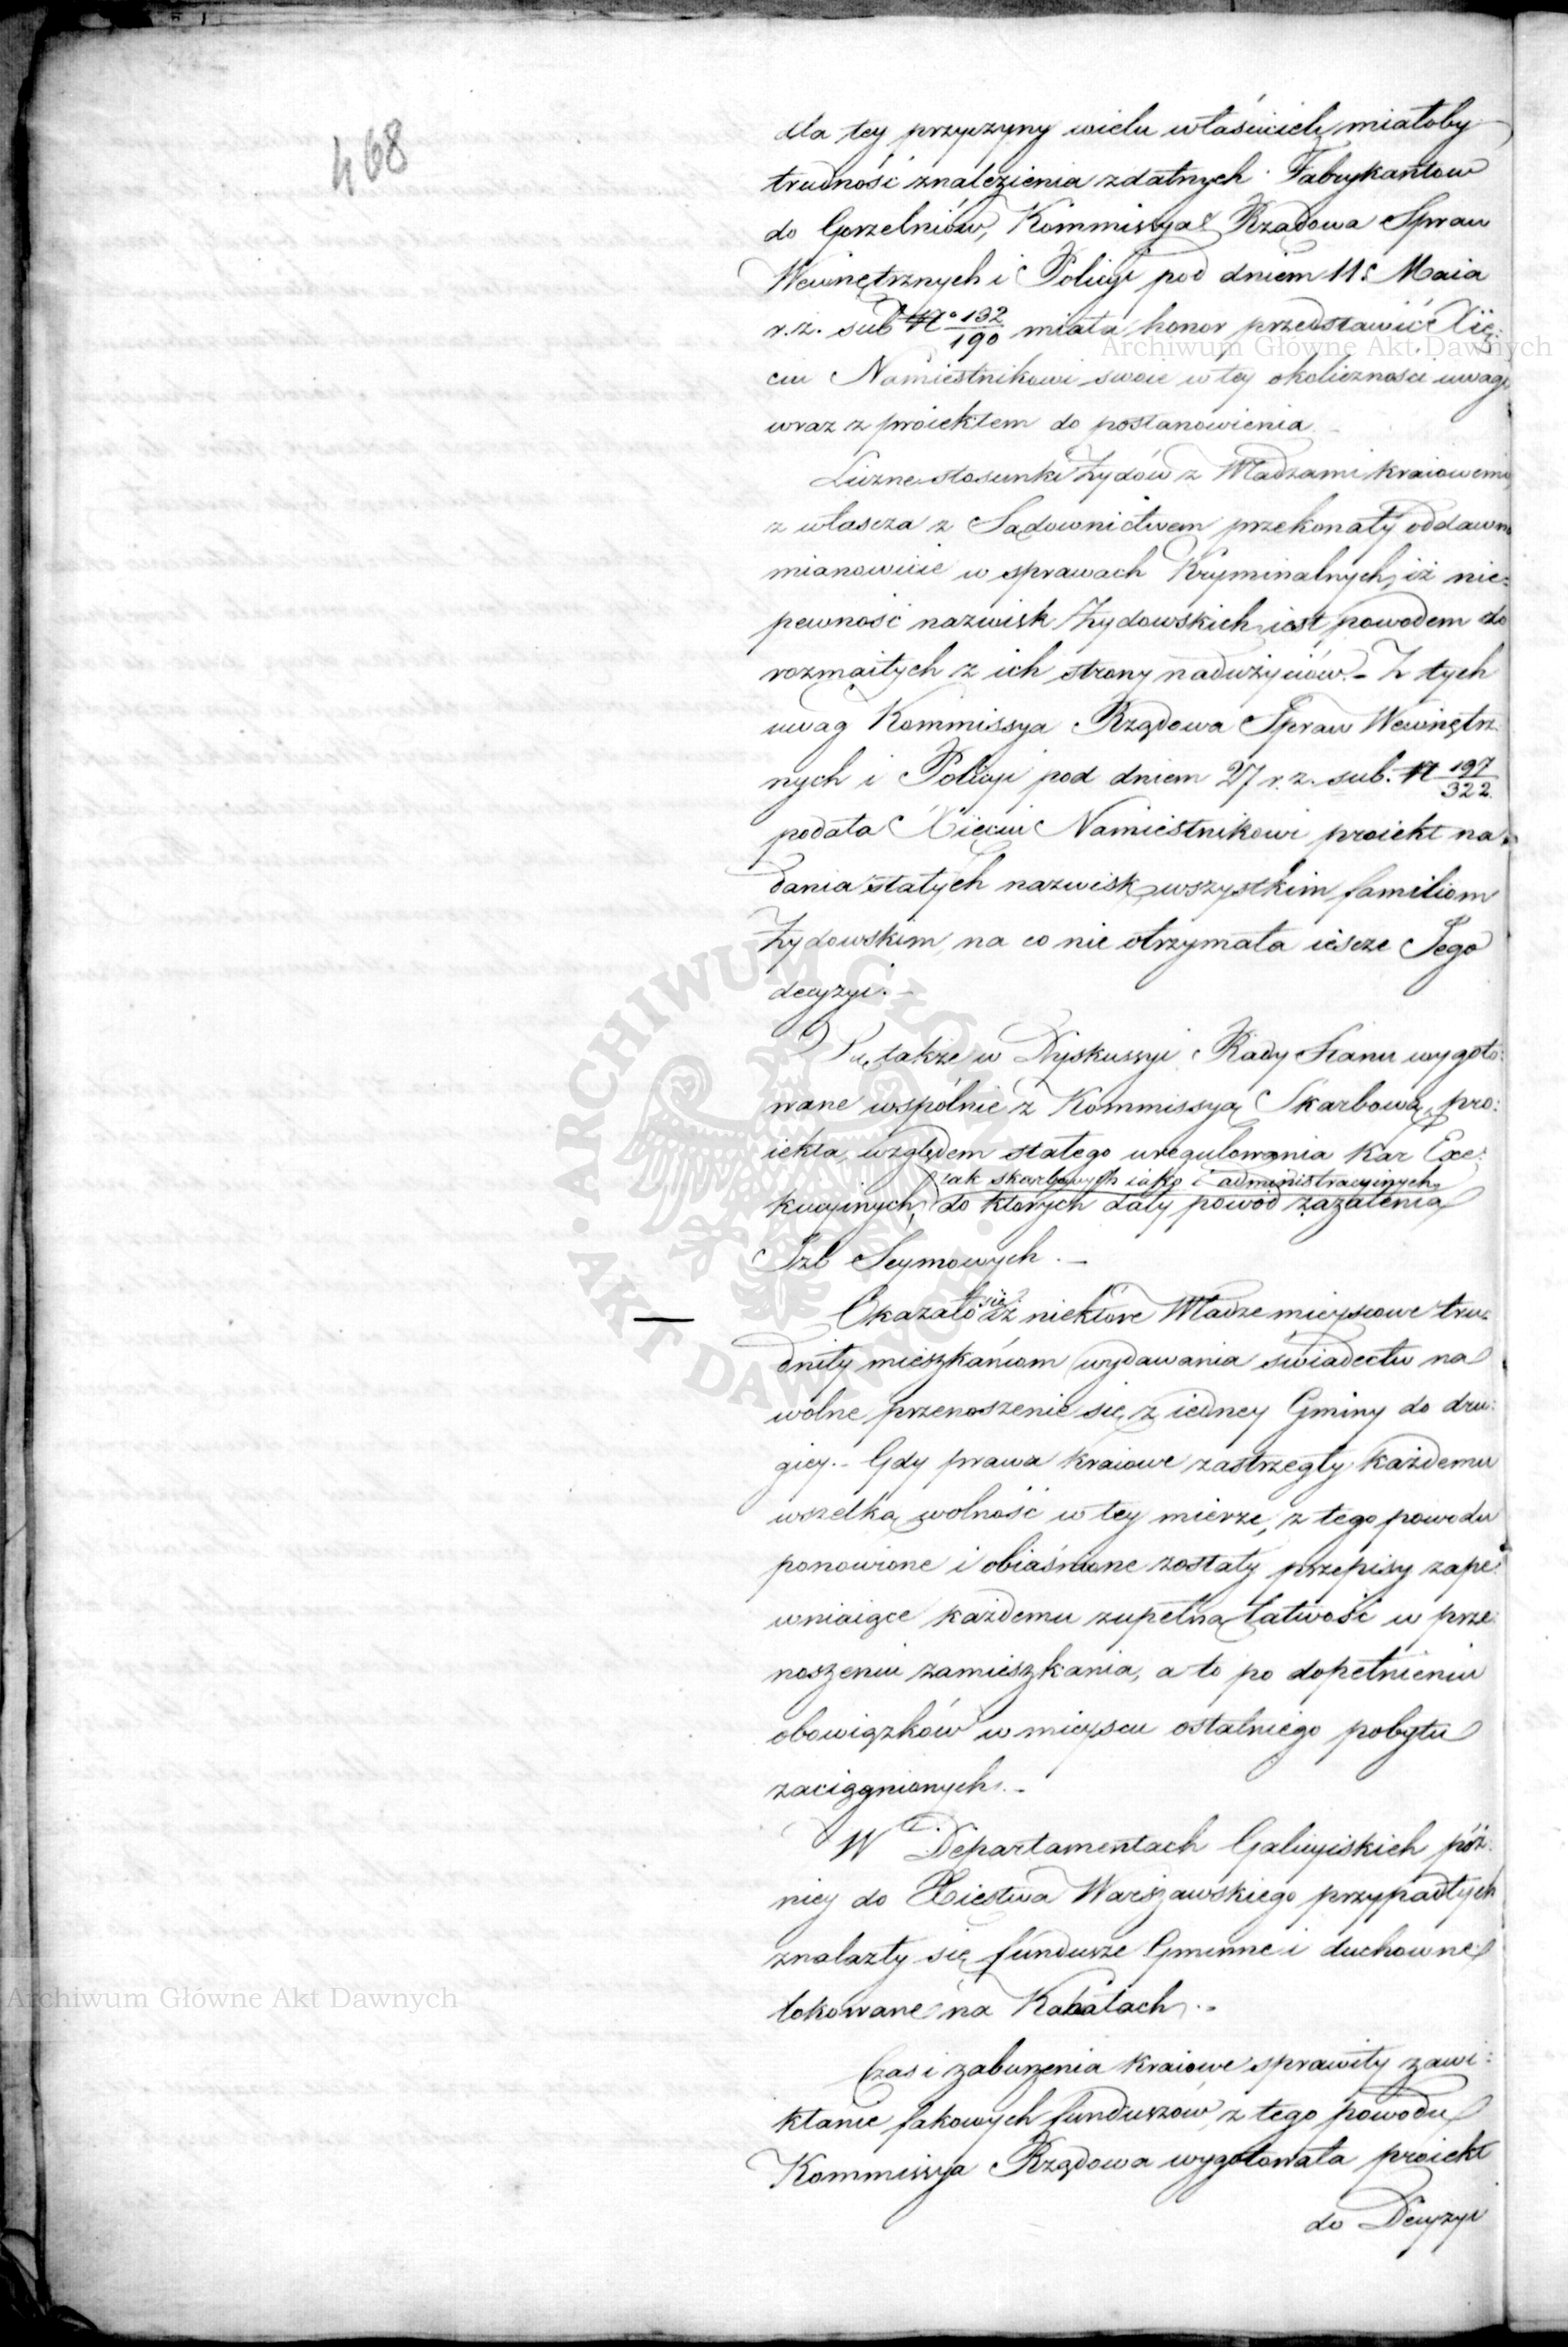 468
dla tey przyczyny wielu właścicieli miałoby
trudność znalezienia zdatnych Fabrykantow
do Gorzelniów, Kommissya Rządowa Spraw
Wewnętrznych i Policyi pod dniem 11: Maia
r. z. sub No 132/190 miała honor przedstawić Xię:
ciu Namiestnikowi swoie w tey okoliczności uwagi
wraz z proiektem do postanowienia
Liczne stosunki Żydów z Władzami kraiowemi
z właszcza z Sądownictwem przekonały oddawna
mianowicie w sprawach Kryminalnych, iż nie:
pewność nazwisk Żydowskich iest powodem do
rozmaitych z ich strony nadużyciów. - Z tych
uwag Kommissya Rządowa Spraw Wewnętrz:
nych i Policyi pod dniem 27 r. z. sub. N 197/322.
podała Xięciu Namiestnikowi proiekt na:
dania stałych nazwisk wszystkim familiom
Żydowskim, na co nie otrzymała iescze Jego
decyzyi. -
Są także w Dyskussyi Rady Stanu wygoto:
wane wspólnie z Kommissyą Skarbową, pro:
iekta względem stałego uregulowania Kar Exe:
tak skarbowych iako i administracyinych
kucyinych, do których dały powód zażalenia
Izb Seymowych. -
Okazało się iż niektóre Władze mieyscowe tru:
dniły mieszkańcom wydawania świadectw na
wolne przenoszenie się z iedney Gminy do dru:
giey. - Gdy prawa kraiowe zastrzegły każdemu
wszelką wolność w tey mierze, z tego powodu
ponowione i obiaśnione zostały przepisy zape:
wniaiące każdemu zupełną łatwość w prze:
noszeniu zamieszkania, a to po dopełnieniu
obowiązków w mieyscu ostatniego pobytu
zaciągnionych. -
W Departamentach Galicyiskich póź:
niey do Xiestwa Warszawskiego przypadłych
znalazły się fundusze Gminne i duchowne
lokowane na Kahałach. -
Czas i zaburzenia kraiowe sprawiły zawi:
kłanie takowych funduszów, z tego powodu
Kommissya Rządowa wygotowała proiekt
do Decyzyi
Archiwum Główne Akt Dawnych
Archiwum Główne Akt Dawnych
ARCHIWUM GŁÓWNE · AKT DAWNYCH ·